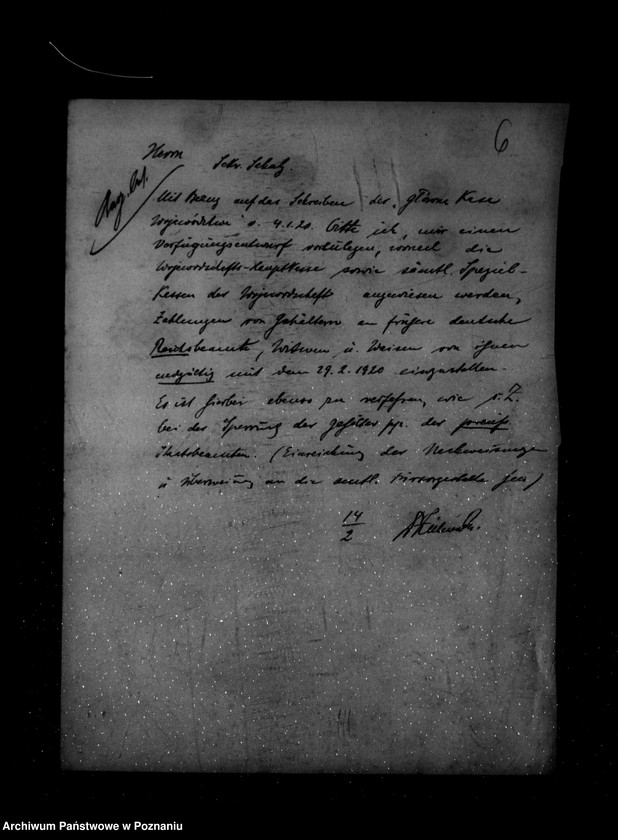 6
Herrn
Sekr. Schulz.
Mit Bezug auf das Schreiben der "Główna Kasa
Wojewódzka" v. 4.1.20. bitte ich, mir einen
Verfügungsentwurf vorzulegen, wonach die
Wojewodschafts-Hauptkasse sowie sämtl. Spezial-
Kassen der Wojewodschaft angewiesen werden,
Zahlungen von Gehältern an frühere deutsche
Reichsbeamte, Witwen u. Waisen von ihnen
endgültig mit dem 29.2.1920 einzustellen.
Es ist hierbei ebenso zu verfahren, wie s. Z.
bei der Sperrung der Gehälter pp. der preuß.
Staatsbeamten. (Einreichung der Nachweisungen
u. Überweisung an die amtl. Fürsorgestelle hier)
14
2
Archiwum Państwowe w Poznaniu